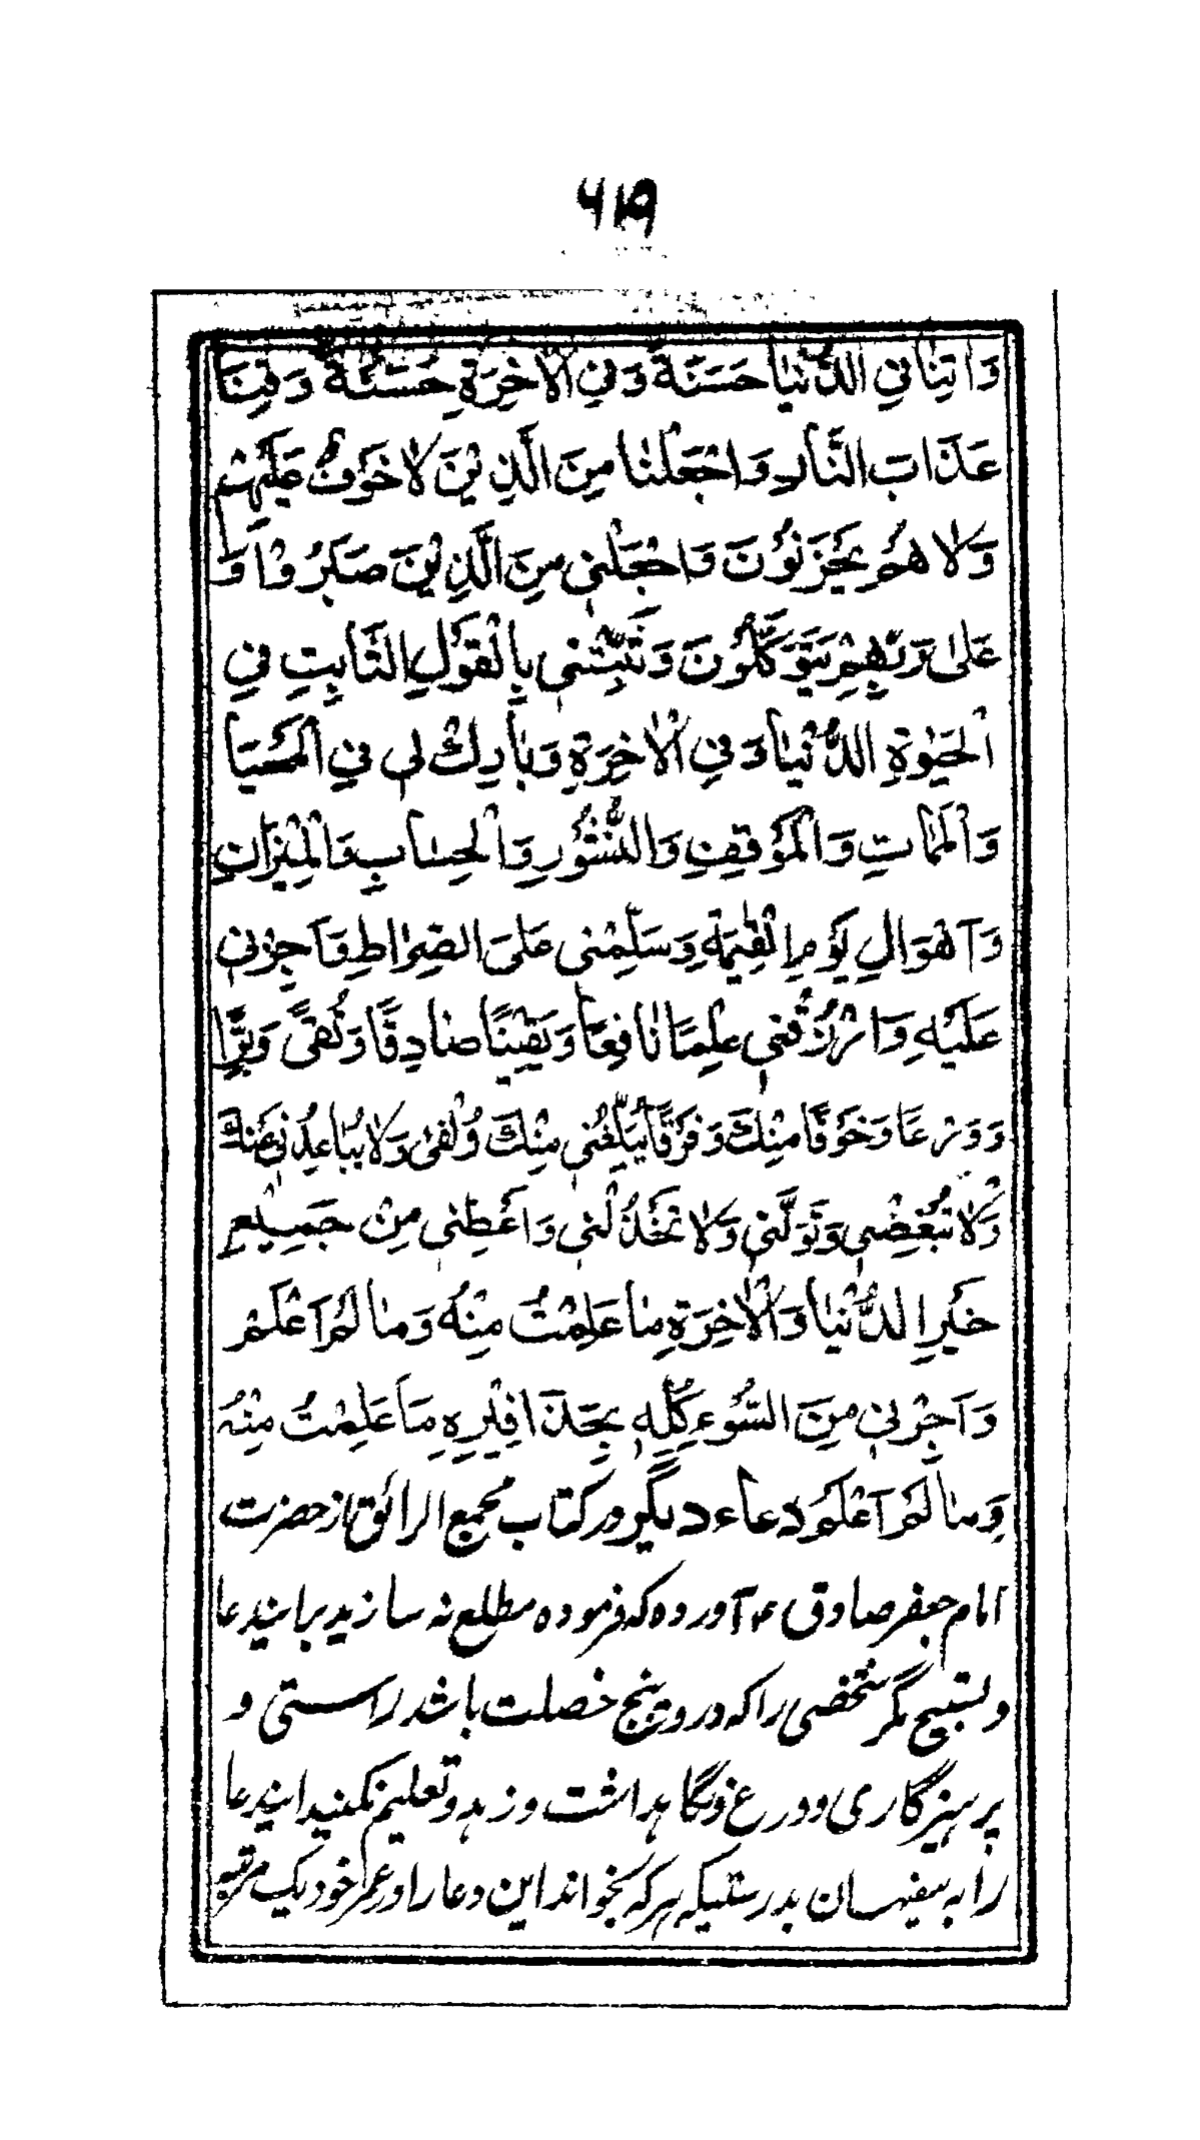 ۶۱۹
وَاٰتِنَا فِي الدُّنْيَا حَسَنَةً وَفِي الْاٰخِرَةِ حَسَنَةً وَقِنَا
عَذَابَ النَّارِ وَاجْعَلْنَا مِنَ الَّذِيْنَ لَا خَوْفٌ عَلَيْهِمْ
وَلَا هُمْ يَحْزَنُوْنَ وَاجْعَلْنِي مِنَ الَّذِيْنَ صَبَرُوْا وَ
عَلٰى رَبِّهِمْ يَتَوَكَّلُوْنَ وَثَبِّتْنِي بِالْقَوْلِ الثَّابِتِ فِي
الْحَيٰوةِ الدُّنْيَا وَفِي الْاٰخِرَةِ وَبَارِكْ لِي فِي الْمَحْيَا
وَالْمَمَاتِ وَالْمَوْقِفِ وَالنُّشُوْرِ وَالْحِسَابِ وَالْمِيْزَانِ
وَاَهْوَالِ يَوْمِ الْقِيٰمَةِ وَسَلِّمْنِي عَلَى الصِّرَاطِ وَاَجِزْنِي
عَلَيْهِ وَارْزُقْنِي عِلْمًا نَافِعًا وَيَقِيْنًا صَادِقًا وَتُقًى وَبِرًّا
وَوَرَعًا وَخَوْفًا مِنْكَ وَفَرَقًا يُبَلِّغُنِي مِنْكَ زُلْفٰى وَلَا يُبَاعِدُنِي عَنْكَ
وَلَا تُبْغِضْنِي وَتَوَلَّنِي وَلَا تَخْذُلْنِي وَاَعْطِنِي مِنْ جَمِيْعِ
خَيْرِ الدُّنْيَا وَالْاٰخِرَةِ مَا عَلِمْتُ مِنْهُ وَمَا لَمْ اَعْلَمْ
وَاَجِرْنِي مِنَ السُّوْءِ كُلِّهِ بِحَذَافِيْرِهِ مَا عَلِمْتُ مِنْهُ
وَمَا لَمْ اَعْلَمْ دعاء دیگر در کتاب مجمع الرائق از حضرت
امام جعفر صادق ع آورده که فرموده مطلع نه سازید براینداعا
و تسبیح مگر شخصی را که در و پنج خصلت باشد راستی و
پرهیزگاری و ورع و نگاهداشت و زهد و تعلیم نکنید ایندعا
را به سفیهان بدرستیکه هر که بخواند این دعا را در عمر خود یک مرتبه